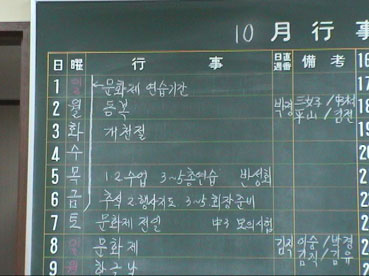 10月行事
日 曜 行事 日直 週番 備考 16
1 일 문화제 연습기간 17
2 월 등복 박경 18
3 화 개천절 平山/김전 19
4 수 20
5 목 12수업 3~5총연습 반성회 21
6 금 추석 2행사지도 3~5회장준비
7 토 문화제 전일 中3 모의시험
8 일 문화제 김직 이승/남경
9 월 한글날 김직/김유